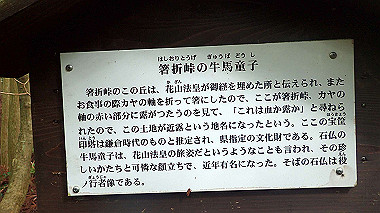 はしおりとうげ　ぎゅうば どうじ
箸折峠の牛馬童子
箸折峠のこの丘は、花山法皇が御経を埋めた所と伝えられ、また
お食事の際カヤの軸を折って箸にしたので、ここが箸折峠、カヤの
軸の赤い部分に露がつたうのを見て、「これは血か露か」と尋ねら
れたので、この土地が近露という地名になったという。ここの宝篋
印塔は鎌倉時代のものと推定され、県指定の文化財である。石仏の
牛馬童子は、花山法皇の旅姿だというようなことも言われ、その珍
しいかたちと可憐な顔立ちで、近年有名になった。そばの石仏は役
ノ行者像である。